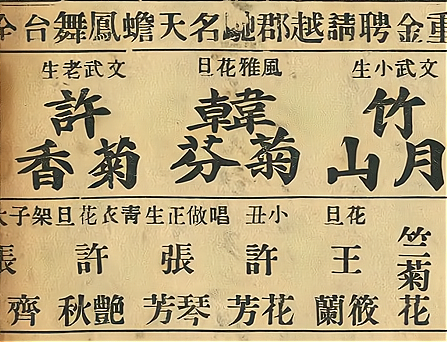 重金聘請越郡馳名天蟾鳳舞台全
文武小生
竹
月山
風雅花旦
韓
菊芬
文武老生
許
菊香
竺菊花
花旦
王
筱蘭
小丑
許
花芳
唱做正生
張
琴芳
青衣花旦
許
艷秋
架子大
張
齊